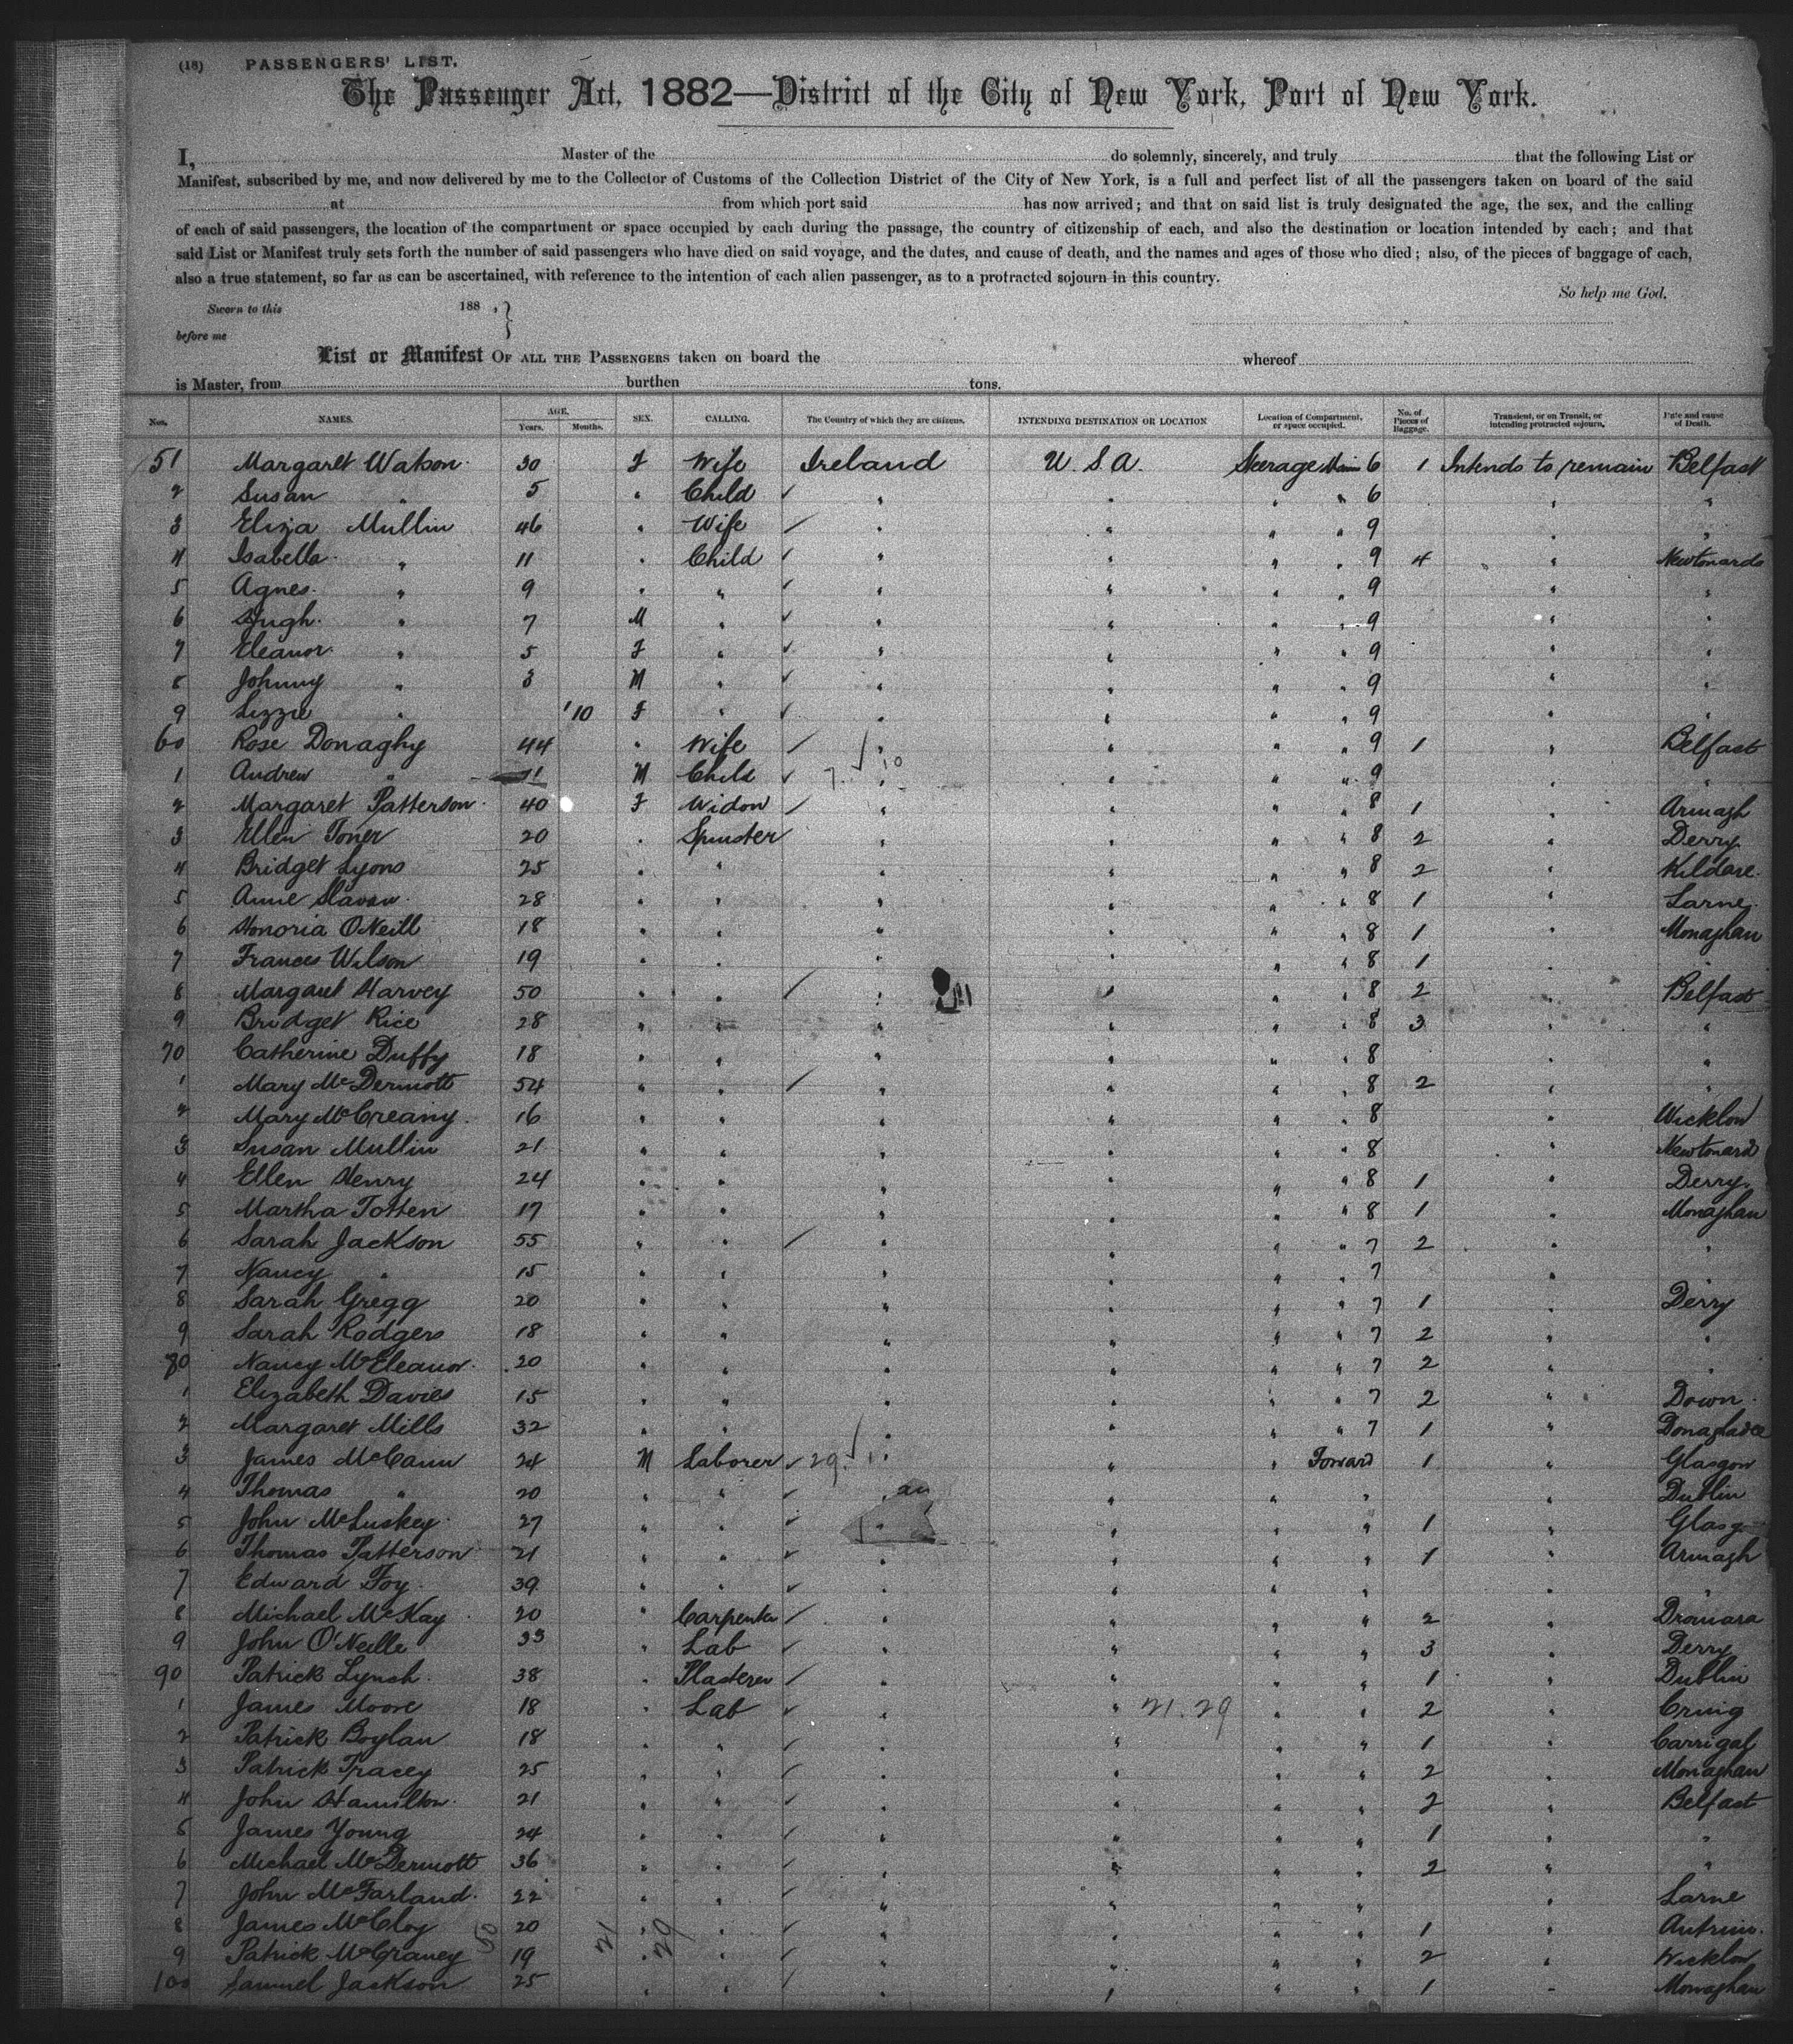 (18) PASSENGERS' LIST.
The Passenger Act, 1882—District of the City of New York, Port of New York.
I, Master of the do solemnly, sincerely, and truly that the following List or
Manifest, subscribed by me, and now delivered by me to the Collector of Customs of the Collection District of the City of New York, is a full and perfect list of all the passengers taken on board of the said
at from which port said has now arrived; and that on said list is truly designated the age, the sex, and the calling
of each of said passengers, the location of the compartment or space occupied by each during the passage, the country of citizenship of each, and also the destination or location intended by each; and that
said List or Manifest truly sets forth the number of said passengers who have died on said voyage, and the dates, and cause of death, and the names and ages of those who died; also, of the pieces of baggage of each,
also a true statement, so far as can be ascertained, with reference to the intention of each alien passenger, as to a protracted sojourn in this country.
So help me God.
Sworn to this 188 ,
before me
List or Manifest OF ALL THE PASSENGERS taken on board the whereof
is Master, from burthen tons.
Nos. NAMES. AGE. Years. Months. SEX. CALLING. The Country of which they are citizens. INTENDING DESTINATION OR LOCATION Location of Compartment, or space occupied. No. of Pieces of Baggage. Transient, or on Transit, or intending protracted sojourn. Date and cause of Death.
51 Margaret Watson 30 F Wife Ireland U.S.A. Steerage Main 6 1 Intends to remain Belfast
2 Susan " 5 " Child " " " " 6 " "
3 Eliza Mullin 46 " Wife " " " " 9 " "
4 Isabella " 11 " Child " " " " 9 4 " Newtonards
5 Agnes " 9 " " " " " " 9 " "
6 Hugh " 7 M " " " " " 9 " "
7 Eleanor " 5 F " " " " " 9 " "
8 Johnny " 3 M " " " " " 9 " "
9 Lizzie " 10 F " " " " " 9 " "
60 Rose Donaghy 44 " Wife " " " " 9 1 " Belfast
1 Andrew " 11 M Child " " " " 9 "
2 Margaret Patterson 40 F Widow " " " " 8 1 " Armagh
3 Ellen Toner 20 " Spinster " " " " 8 2 " Derry
4 Bridget Lyons 25 " " " " " " 8 2 " Kildare
5 Anne Slavan 28 " " " " " " 8 1 " Larne
6 Honoria O'Neill 18 " " " " " " 8 1 " Monaghan
7 Frances Wilson 19 " " " " " " 8 1 "
8 Margaret Harvey 50 " " " " " " 8 2 " Belfast
9 Bridget Rice 28 " " " " " " 8 3 " "
70 Catherine Duffy 18 " " " " " " 8 " "
1 Mary McDermott 54 " " " " " " 8 2 " "
2 Mary McCreainy 16 " " " " " " 8 " Wicklow
3 Susan Mullin 21 " " " " " " 8 " Newtonard
4 Ellen Henry 24 " " " " " " 8 1 " Derry
5 Martha Totten 17 " " " " " " 8 1 " Monaghan
6 Sarah Jackson 55 " " " " " " 7 2 " "
7 Nancy " 15 " " " " " " 7 "
8 Sarah Gregg 20 " " " " " " 7 1 " Derry
9 Sarah Rodgers 18 " " " " " " 7 2 " "
80 Nancy McEleanor 20 " " " " " " 7 2 " "
1 Elizabeth Davies 15 " " " " " " 7 2 " Down
2 Margaret Mills 32 " " " " " " 7 1 " Donaghadee
3 James McCann 24 M Laborer 29 " " " Forward 1 " Glasgow
4 Thomas " 20 " " " " " " " Dublin
5 John McLuskey 27 " " " " " " 1 " Glasg
6 Thomas Patterson 21 " " " " " " 1 " Armagh
7 Edward Foy 39 " " " " " " " "
8 Michael McKay 20 " Carpenter " " " " 2 " Dromara
9 John O'Neille 33 " Lab " " " " 3 " Derry
90 Patrick Lynch 38 " Plasterer " " " " 1 " Dublin
1 James Moore 18 " Lab " " 21.29 " " 2 "
2 Patrick Boylan 18 " " " " " " 1 " Carrigal
3 Patrick Tracey 25 " " " " " " 2 " Monaghan
4 John Hamilton 21 " " " " " " 2 " Belfast
5 James Young 24 " " " " " " 1 " "
6 Michael McDermott 36 " " " " " " 2 " "
7 John McFarland 22 " " " " " " " Larne
8 James McCloy 20 " " " " " " 1 " Antrim
9 Patrick McCraney 19 " " " " " " 2 " Wicklow
100 Samuel Jackson 25 " " " " " " 1 " Monaghan
50 21 29